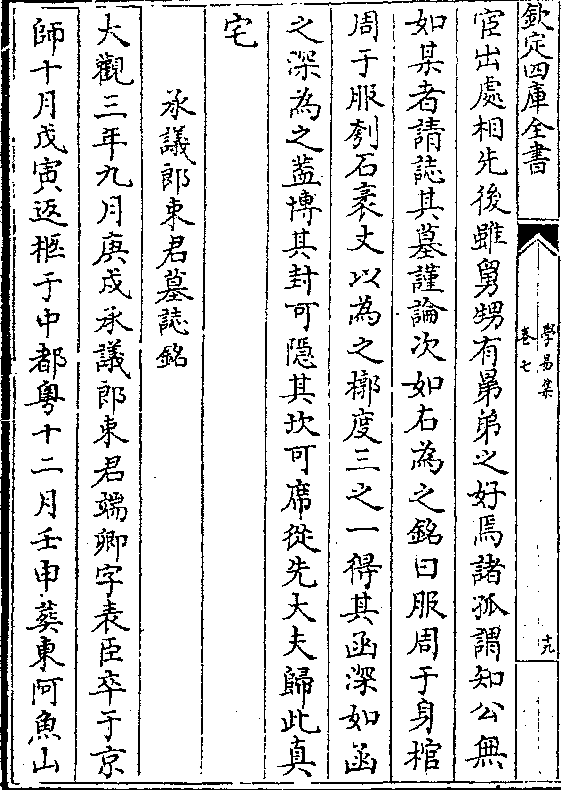 欽定四庫全書
學易集
卷七
十九
宦出處相先後雖舅甥有晜弟之好焉諸孤謂知公無
如某者請誌其墓謹論次如右為之銘曰服周于身棺
周于服刳石袤丈以為之槨度三之一得其函深如函
之深為之葢博其封可隱其坎可席從先大夫歸此真
宅
承議郎東君墓誌銘
大觀三年九月庚戌承議郎東君端卿字表臣卒于京
師十月戊寅返柩于中都粵十二月壬申葬東阿魚山